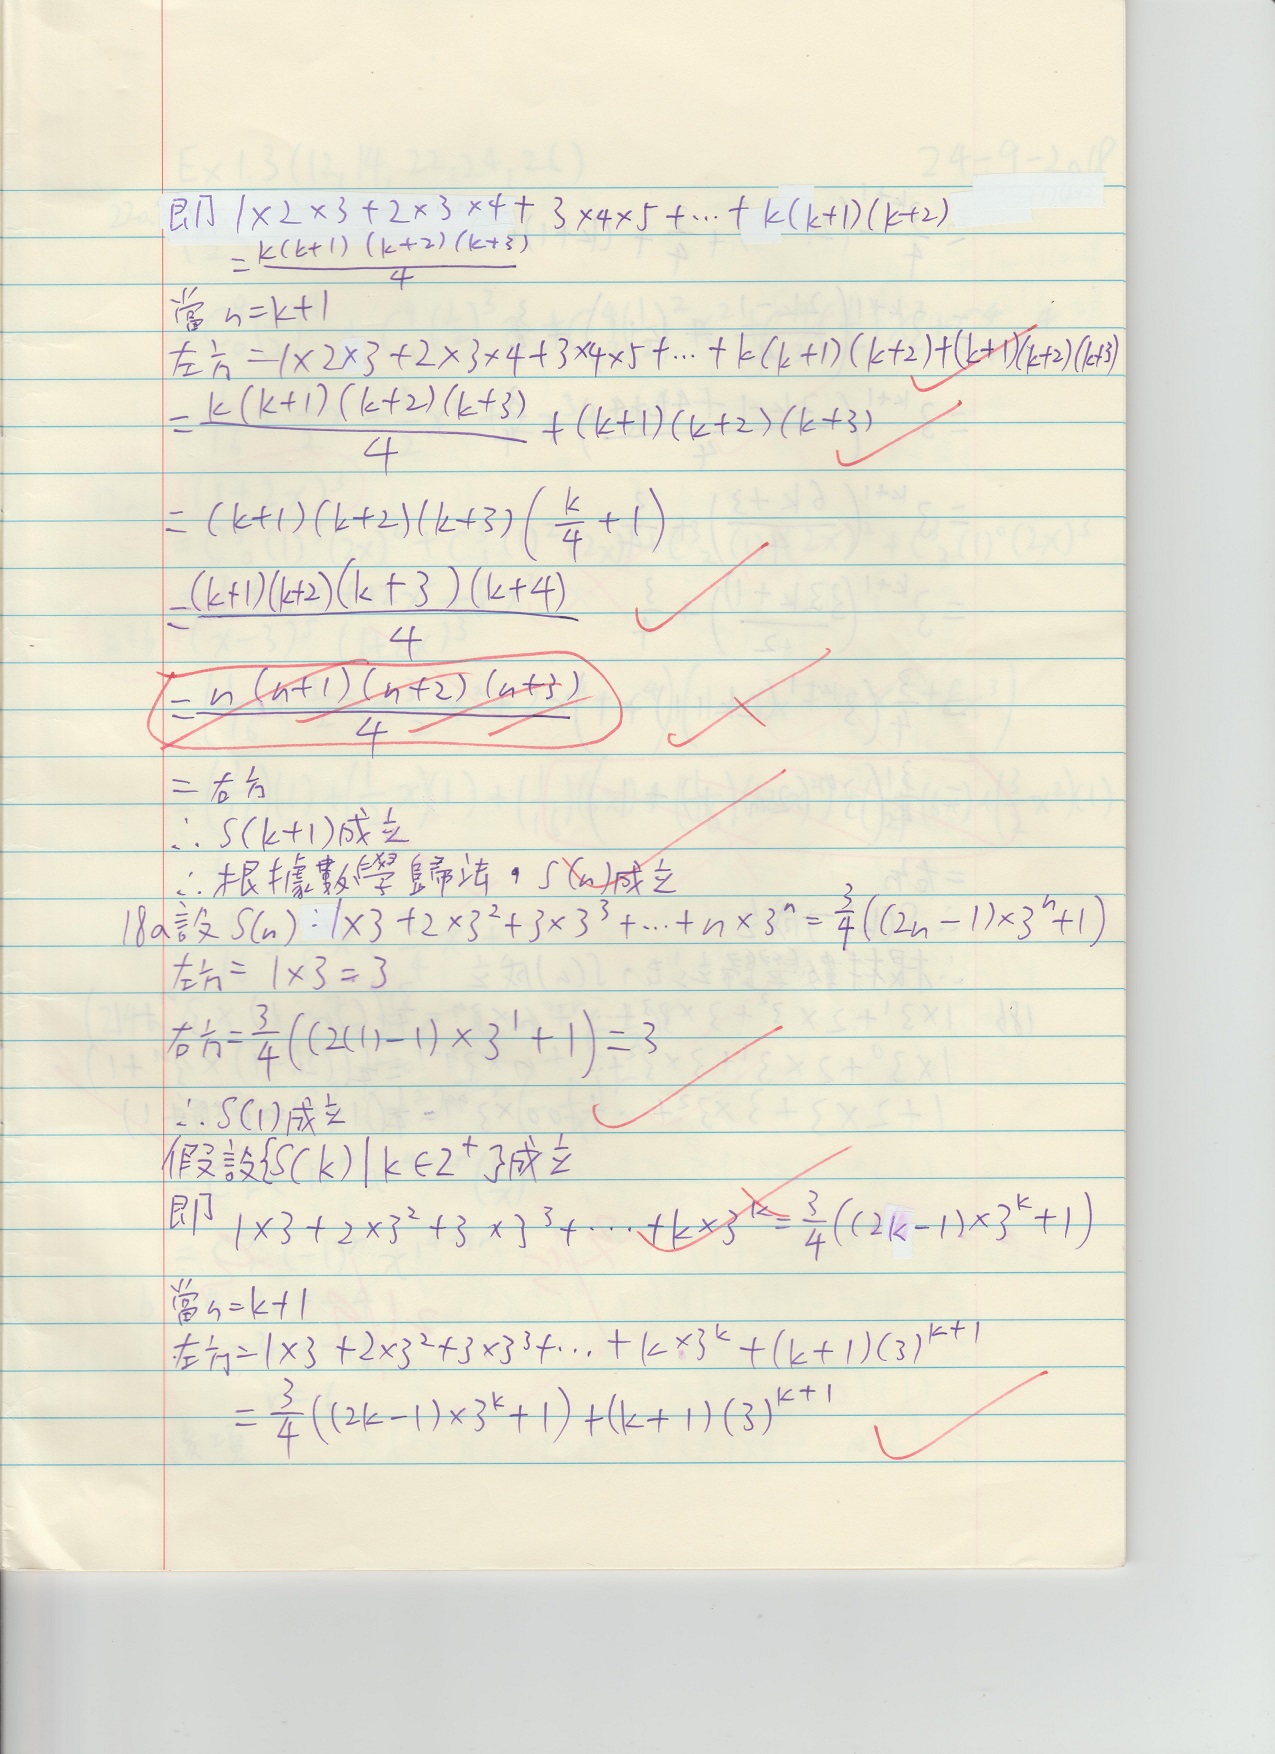 即 1×2×3+2×3×4+3×4×5+…+k(k+1)(k+2)
=k(k+1)(k+2)(k+3)/4
當 n=k+1
左方=1×2×3+2×3×4+3×4×5+…+k(k+1)(k+2)+(k+1)(k+2)(k+3)
=k(k+1)(k+2)(k+3)/4+(k+1)(k+2)(k+3)
=(k+1)(k+2)(k+3)(k/4+1)
=(k+1)(k+2)(k+3)(k+4)/4
=n(n+1)(n+2)(n+3)/4
=右方
∴S(k+1)成立
∴根據數學歸法,S(n)成立
18a設 S(n):1×3+2×3²+3×3³+…+n×3ⁿ=3/4((2n-1)×3ⁿ+1)
左方=1×3=3
右方=3/4((2(1)-1)×3¹+1)=3
∴S(1)成立
假設{S(k)|k∈Z⁺}成立
即 1×3+2×3²+3×3³+…+k×3ᵏ=3/4((2k-1)×3ᵏ+1)
當n=k+1
左方=1×3+2×3²+3×3³+…+k×3ᵏ+(k+1)(3)ᵏ⁺¹
=3/4((2k-1)×3ᵏ+1)+(k+1)(3)ᵏ⁺¹